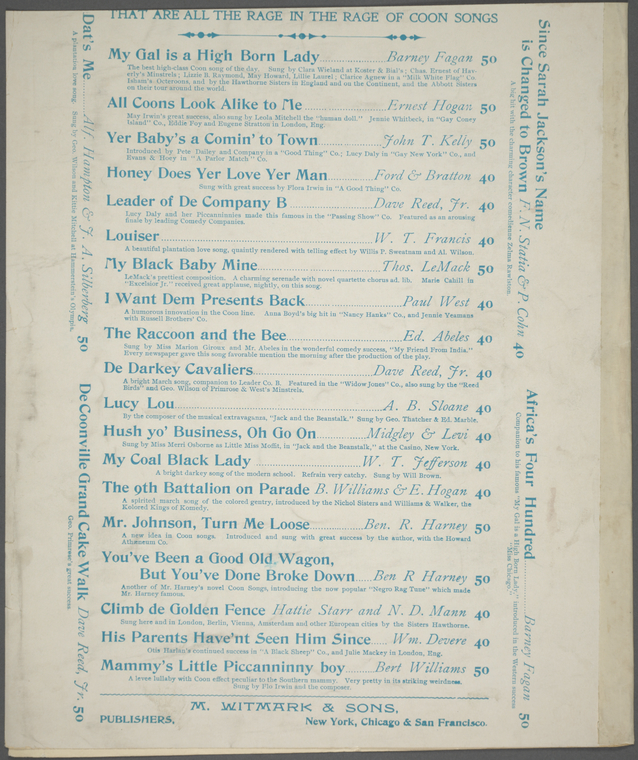 THAT ARE ALL THE RAGE IN THE RAGE OF COON SONGS
My Gal is a High Born Lady..............Barney Fagan 50
The best high-class Coon song of the day. Sung by Clara Wieland at Koster & Bial's; Chas. Ernest of Hav-
erly's Minstrels; Lizzie B. Raymond, May Howard, Lillie Laurel; Clarice Agnew in a "Milk White Flag" Co.
Isham's Octoroons, and by the Hawthorne Sisters in England and on the Continent, and the Abbott Sisters
on their tour around the world.
All Coons Look Alike to Me..............Ernest Hogan 50
May Irwin's great success, also sung by Leola Mitchell the "human doll." Jennie Whitbeck, in "Gay Coney
Island" Co., Eddie Foy and Eugene Stratton in London, Eng.
Yer Baby's a Comin' to Town..............John T. Kelly 50
Introduced by Pete Dailey and Company in a "Good Thing" Co.; Lucy Daly in "Gay New York" Co., and
Evans & Hoey in "A Parlor Match" Co.
Honey Does Yer Love Yer Man..............Ford & Bratton 40
Sung with great success by Flora Irwin in "A Good Thing" Co.
Leader of De Company B..............Dave Reed, Jr. 40
Lucy Daly and her Piccanninnies made this famous in the "Passing Show" Co. Featured as an arousing
finale by leading Comedy Companies.
Louiser..............W. T. Francis 40
A beautiful plantation love song, quaintly rendered with telling effect by Willis P. Sweatnam and Al. Wilson.
My Black Baby Mine..............Thos. LeMack 50
LeMack's prettiest composition. A charming serenade with novel quartette chorus ad. lib. Marie Cahill in
"Excelsior Jr." received great applause, nightly, on this song.
I Want Dem Presents Back..............Paul West 40
A humorous innovation in the Coon line. Anna Boyd's big hit in "Nancy Hanks" Co., and Jennie Yeamans
with Russell Brothers' Co.
The Raccoon and the Bee..............Ed. Abeles 40
Sung by Miss Marion Giroux and Mr. Abeles in the wonderful comedy success, "My Friend From India."
Every newspaper gave this song favorable mention the morning after the production of the play.
De Darkey Cavaliers..............Dave Reed, Jr. 40
A bright March song, companion to Leader Co. B. Featured in the "Widow Jones" Co., also sung by the "Reed
Birds" and Geo. Wilson of Primrose & West's Minstrels.
Lucy Lou..............A. B. Sloane 40
By the composer of the musical extravaganza, "Jack and the Beanstalk." Sung by Geo. Thatcher & Ed. Marble.
Hush yo' Business, Oh Go On..............Midgley & Levi 40
Sung by Miss Merri Osborne as Little Miss Moffit, in "Jack and the Beanstalk," at the Casino, New York.
My Coal Black Lady ..............W. T. Jefferson 40
A bright darkey song of the modern school. Refrain very catchy. Sung by Will Brown.
The 9th Battalion on Parade B. Williams & E. Hogan 40
A spirited march song of the colored gentry, introduced by the Nichol Sisters and Williams & Walker, the
Kolored Kings of Komedy.
Mr. Johnson, Turn Me Loose..............Ben. R. Harney 50
A new idea in Coon songs. Introduced and sung with great success by the author, with the Howard
Athenæum Co.
You've Been a Good Old Wagon,
But You've Done Broke Down......Ben R Harney 50
Another of Mr. Harney's novel Coon Songs, introducing the now popular "Negro Rag Tune" which made
Mr. Harney famous.
Climb de Golden Fence Hattie Starr and N. D. Mann 40
Sung here and in London, Berlin, Vienna, Amsterdam and other European cities by the Sisters Hawthorne.
His Parents Have'nt Seen Him Since......Wm. Devere 40
Otis Harlan's continued success in "A Black Sheep" Co., and Julie Mackey in London, Eng.
Mammy's Little Piccanninny boy..............Bert Williams 50
A levee lullaby with Coon effect peculiar to the Southern mammy. Very pretty in its striking weirdness.
Sung by Flo Irwin and the composer.
M. WITMARK & SONS,
PUBLISHERS, New York, Chicago & San Francisco.
Dat's Me......Alf. Hampton & J. A. Silberberg 50
A plantation love song. Sung by Geo. Wilson and Kittie Mitchell at Hammerstein's Olympia.
De Coonville Grand Cake Walk Dave Reed, Jr. 50
Geo. Primrose's great success.
Since Sarah Jackson's Name
is Changed to Brown F. N. Statia & P. Cohn 40
A big hit with the charming character comedienne Zelma Rawlston.
Africa's Four Hundred ......Barney Fagan 50
Companion to his famous "My Gal is a High Born Lady," introduced in the Western success
"Miss Chicago."